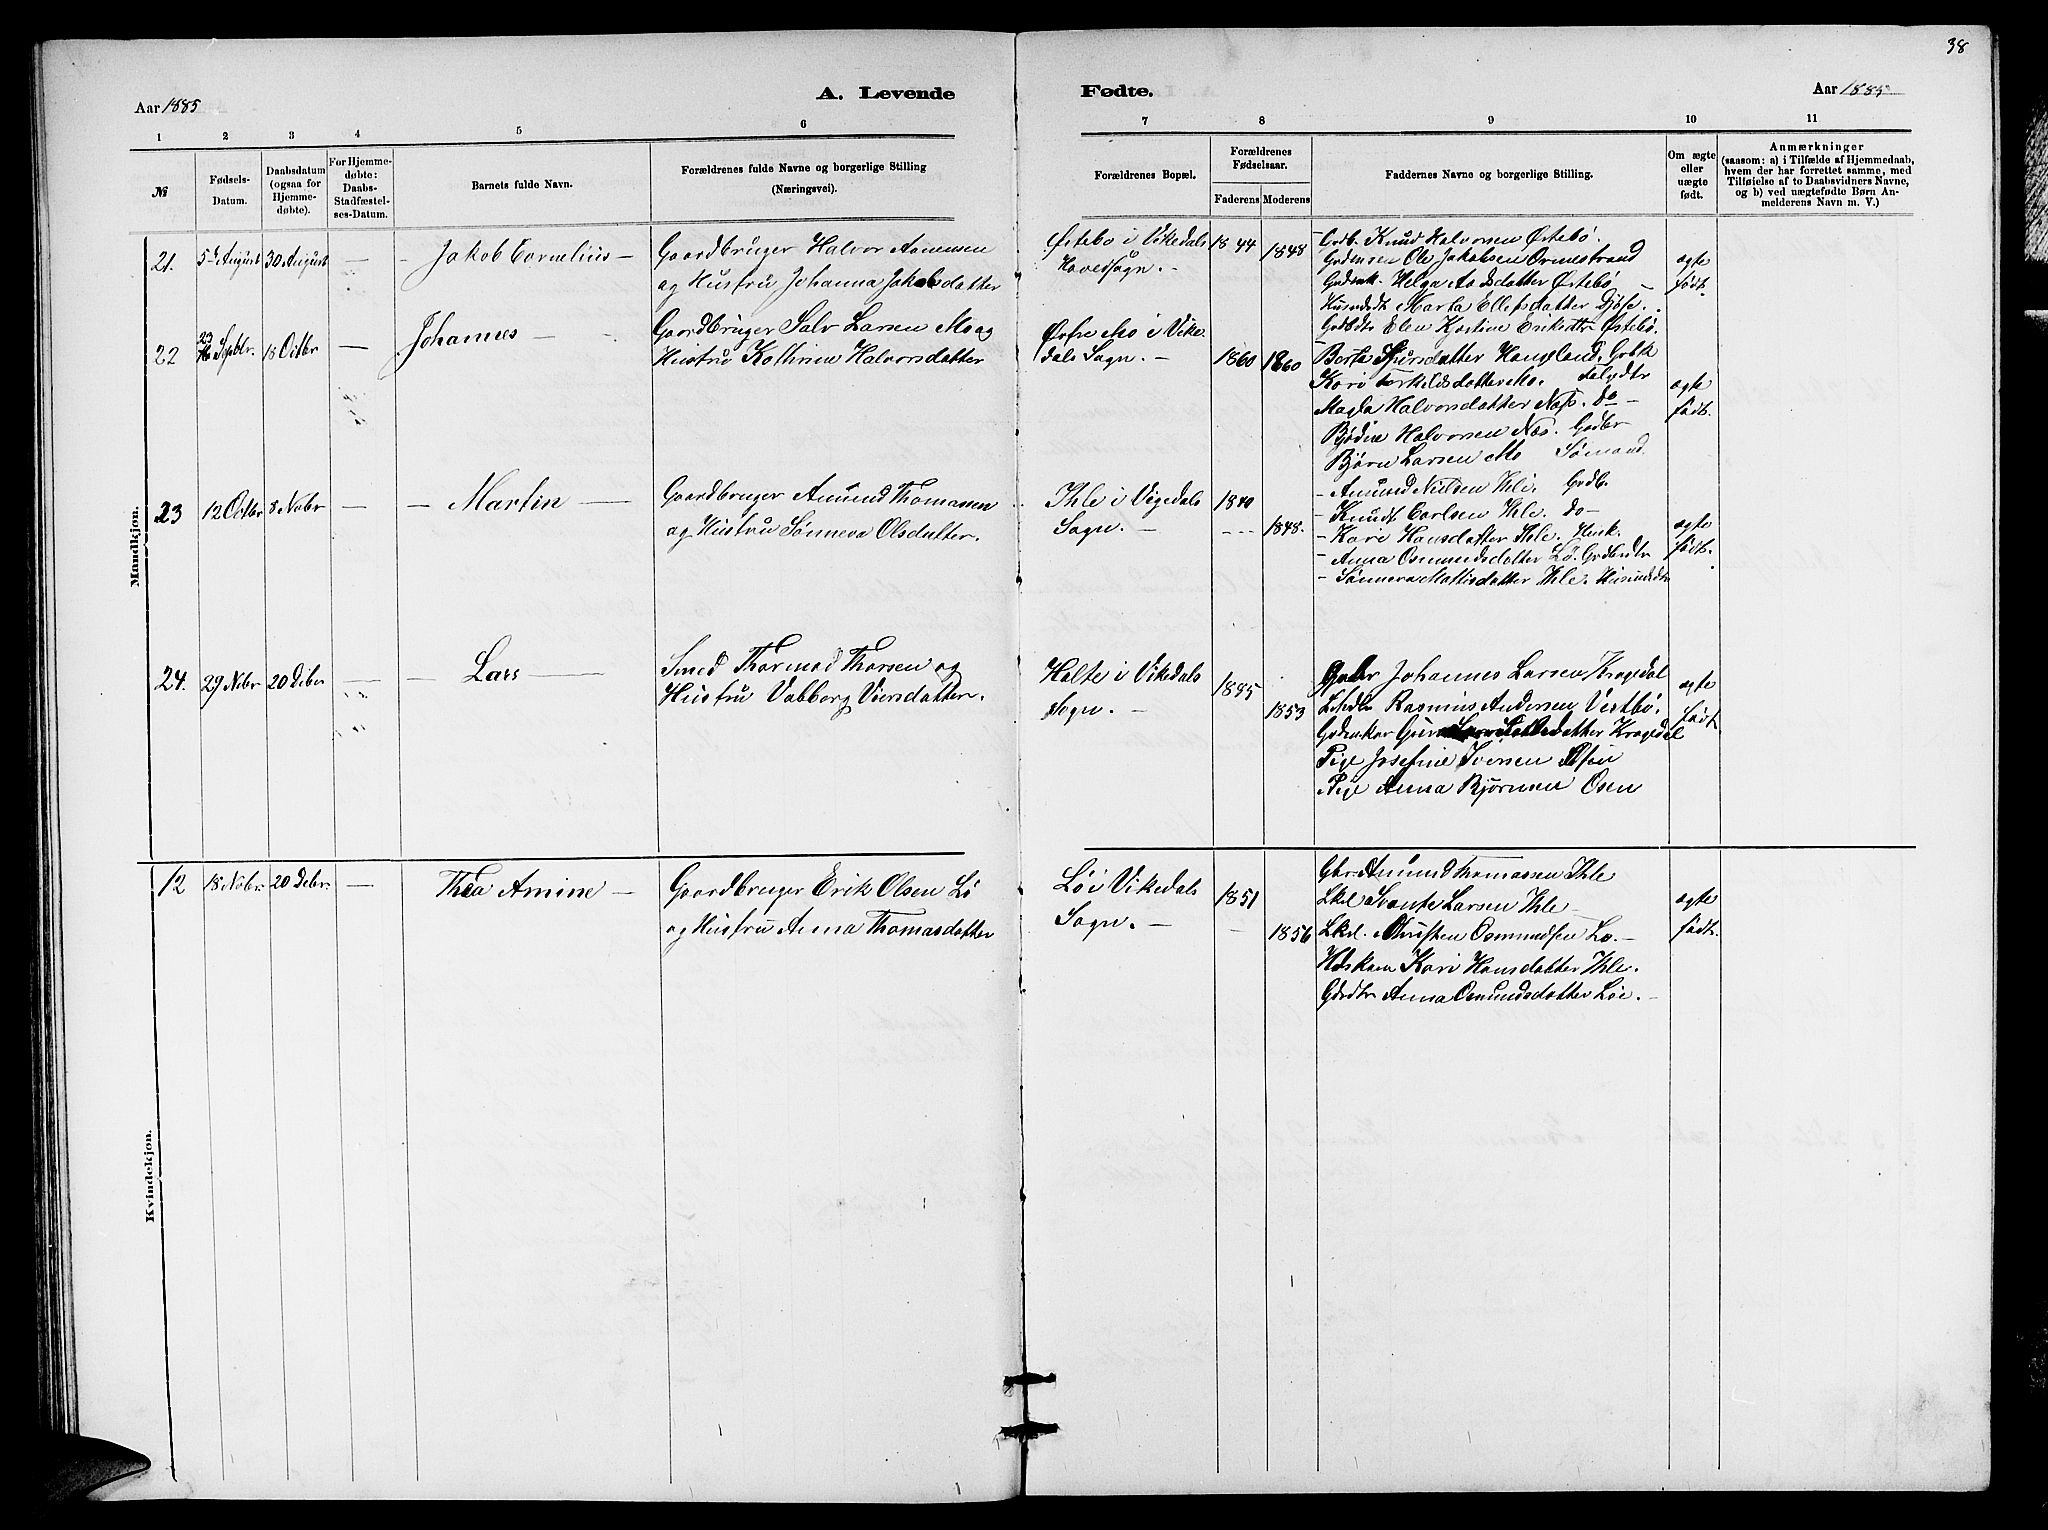 38
Aar 1885
A. Levende
Fødte.
Aar 1885
1 2 3 4 5 6 7 8 9 10 11
№
Fødsels-Datum.
Daabsdatum (ogsaa for Hjemmedøbte).
For Hjemmedøbte: Daabs-Stadfæstelses-Datum.
Barnets fulde Navn.
Forældrenes fulde Navne og borgerlige Stilling
(Næringsvei).
Forældrenes Bopæl.
Forældrenes Fødselsaar.
Faderens
Moderens
Faddernes Navne og borgerlige Stilling.
Om ægte eller uægte født.
Anmærkninger
(saasom: a) i Tilfælde af Hjemmedaab,
hvem der har forrettet samme, med
Tilføielse af to Daabsvidners Navne,
og b) ved uægtefødte Børn An-
melderens Navn m. V.)
Mandkjøn.
21. 5te August 30 August — - Jakob Cornelius -
Gaardbruger Halvor Asmunsen
og Hustru Johanna Jakobsdatter
Østebø i Vikedals
Hovedsogn. -
1844 1848
Grdb. Knud Halvorsen Østebø.
Ole Jakobsen Ormestrand
Helga Østebø
Marta Ellefsdatter
Elen Kjistine Eriksdtr Østebø.
ægte
født.
22 23 Septbr. 18 Octbr — Johannes —
Gaardbruger Salv Larsen Mo og
Hustru Kathrine Halvorsdatter
Øvre Mo i Vike
dals Sogn. -
1860 1860
Berta Haugland. Grbk
Kari Torkildsdatter Mo.
Magla Halvorsdatter Næs. do -
Bjødne Halvorsen Næs. Grdbr
Bjørn Larsen Mo Sømand.
ægte
født.
23 12 Octbr 8 Nobr — - Martin —
Gaardbruger Amund Thomassen
og Hustru Sønneva Olsdatter.
Ihle i Vigedals
Sogn. -
1840 1848.
- Amund Nielsen Ihle. Grdb.
- Knudt Carlsen Ihle. do -
- Kari Hansdatter Ihle. Husk.
- Anna Osmundsdatter Lø. Grdbrdtr
- Sønneva Mattisdatter Ihle. Husmdsdtr
ægte
født.
24. 29 Nobr 20 Debr — - Lars —
Smed Thormod Thorsen og
Hustru Valborg Viersdatter.
Helte i Vikedals
Sogn. -
1885 1853
Johannes Larsen Kragedal
Rasmus Andersen Vestbø.
Kragedal
Pige Josefine Iversen
Pige Anna Bjørnsen Osen
ægte
født
Kvindekjøn.
12 18 Nobr. 20 Debr. — Thea Amine —
Gaardbruger Erik Olsen Lø
og Hustru Anna Thomasdatter
Lø i Vikedals
Sogn. -
1851 1856
Gbr Amund Thomassen Ihle
Lkrl Svante Larsen Ihle -
Lkrl. Christen Osmundsen Lø. -
Huskone Kari Hansdatter Ihle.
Grdtr Anna Osmundsdatter Løe. -
ægte
født.